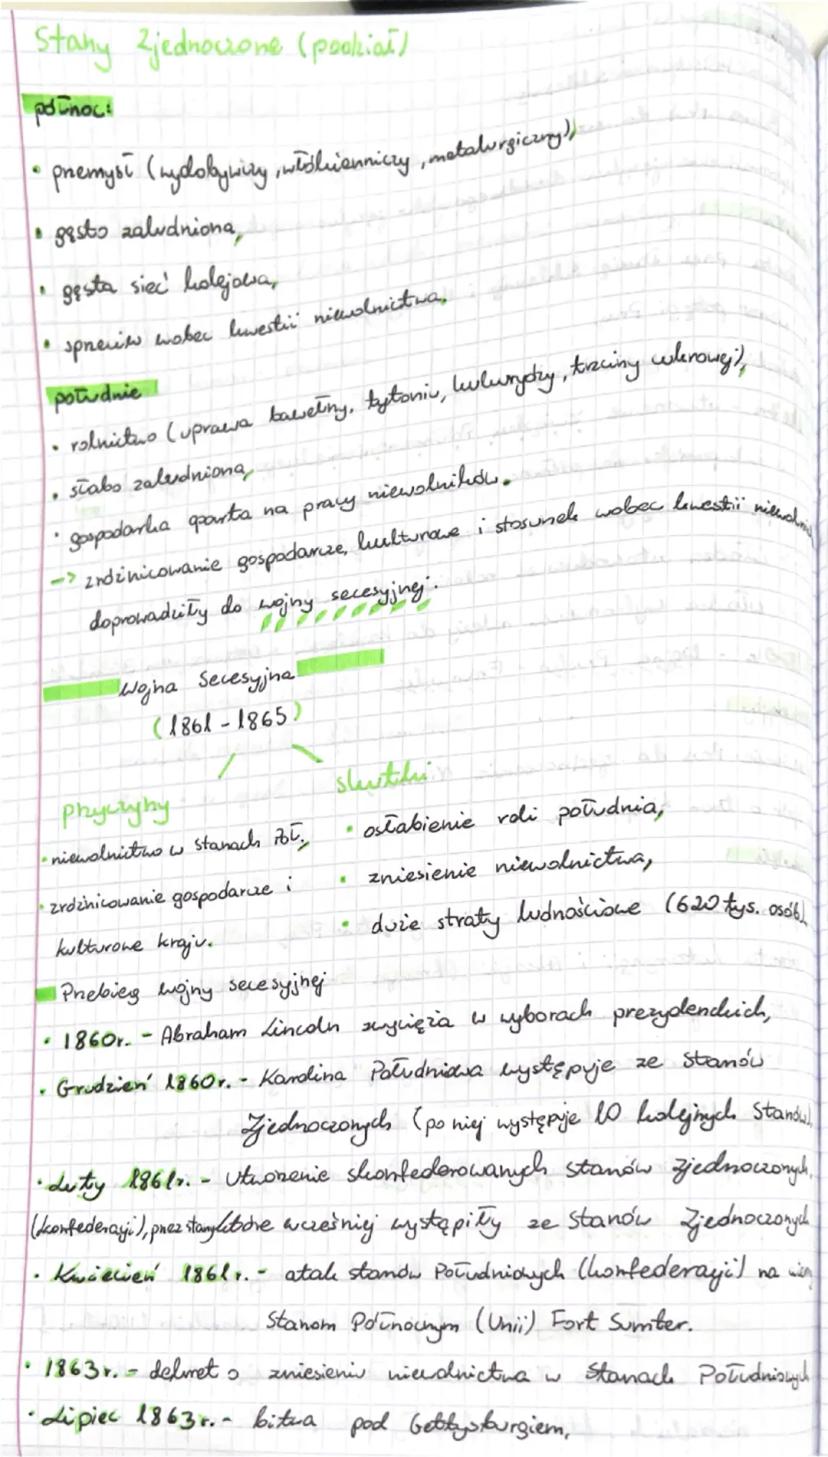 Stany Zjednoczone (podział)
północ:
• przemysł (wydobywczy, włókienniczy, metalurgiczny),
• gęsto zaludniona,
• gęsta sieć kolejowa,
• sprzeciw wobec kwestii niewolnictwa.
południe
• rolnictwo (uprawa bawełny, tytoniu, kukurydzy, trzciny cukrowej),
• słabo zaludniona,
• gospodarka oparta na pracy niewolników.
-> zróżnicowanie gospodarcze, kulturowe i stosunek wobec kwestii
doprowadziły do wojny secesyjnej.
Wojna Secesyjna
(1861 - 1865)
przyczyny
skutki
• niewolnictwo w stanach Poł.,
• osłabienie roli południa,
• zróżnicowanie gospodarcze i
kulturowe kraju.
• zniesienie niewolnictwa,
• duże straty ludnościowe (620 tys. osób)
Przebieg wojny secesyjnej
• 1860r. - Abraham Lincoln zwycięża w wyborach prezydenckich,
• Grudzień 1860r. - Karolina Południowa występuje ze Stanów
Zjednoczonych (po niej występuje 10 kolejnych Stanów),
• Luty 1861r. - Utworzenie skonfederowanych stanów zjednoczonych
(konfederacji), przez stany które wcześniej wystąpiły ze Stanów Zjednoczonych
• Kwiecień 1861r. - atak stanów Południowych (konfederacji) na
Stanom Północnym (Unii) Fort Sumter.
• 1863r. - dekret o zniesieniu niewolnictwa w Stanach Południowych
• Lipiec 1863r. - bitwa pod Gettysburgiem,